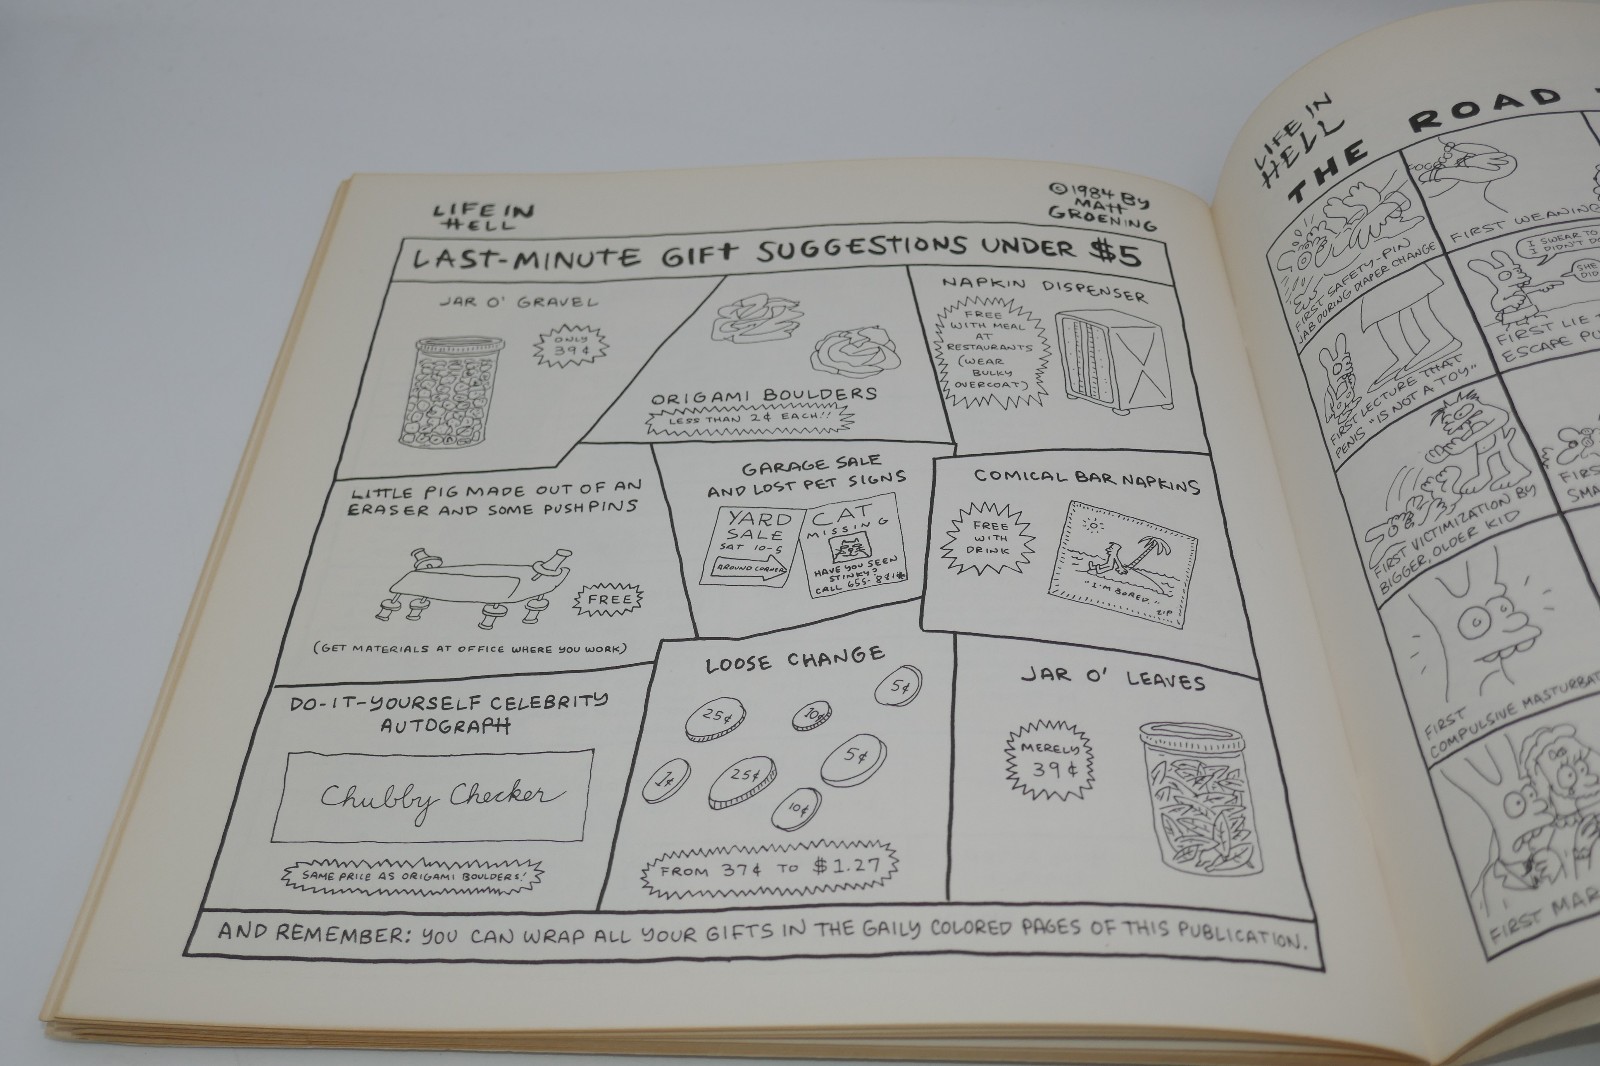 LIFE IN
HELL
©1984 BY
MATT
GROENING
LAST-MINUTE GIFT SUGGESTIONS UNDER $5
JAR O' GRAVEL
ONLY
39¢
ORIGAMI BOULDERS
LESS THAN 2¢ EACH!!
NAPKIN DISPENSER
FREE
WITH MEAL
AT
RESTAURANTS
(WEAR
BULKY
OVERCOAT)
LITTLE PIG MADE OUT OF AN
ERASER AND SOME PUSHPINS
FREE
(GET MATERIALS AT OFFICE WHERE YOU WORK)
GARAGE SALE
AND LOST PET SIGNS
YARD
SALE
SAT 10-5
AROUND CORNER
CAT
MISSING
HAVE YOU SEEN
STINKY?
CALL 655-
COMICAL BAR NAPKINS
FREE
WITH
DRINK
"I'M BORED."
ZIP
DO-IT-YOURSELF CELEBRITY
AUTOGRAPH
Chubby Checker
SAME PRICE AS ORIGAMI BOULDERS!
LOOSE CHANGE
5¢
25¢
10¢
5¢
1¢
25¢
10¢
FROM 37¢ TO $1.27
JAR O' LEAVES
MERELY
39¢
AND REMEMBER: YOU CAN WRAP ALL YOUR GIFTS IN THE GAILY COLORED PAGES OF THIS PUBLICATION.
LIFE IN
HELL
THE ROAD
FIRST SAFETY-PIN
JAB DURING DIAPER CHANGE
FIRST WEANING
FIRST LECTURE THAT
PENIS "IS NOT A TOY"
I SWEAR TO
I DIDN'T DO
SHE
DID
FIRST LIE T
ESCAPE PU
FIRST VICTIMIZATION BY
BIGGER, OLDER KID
FIRS
SMA
FIRST
COMPULSIVE MASTURBAT
FIRST MAR